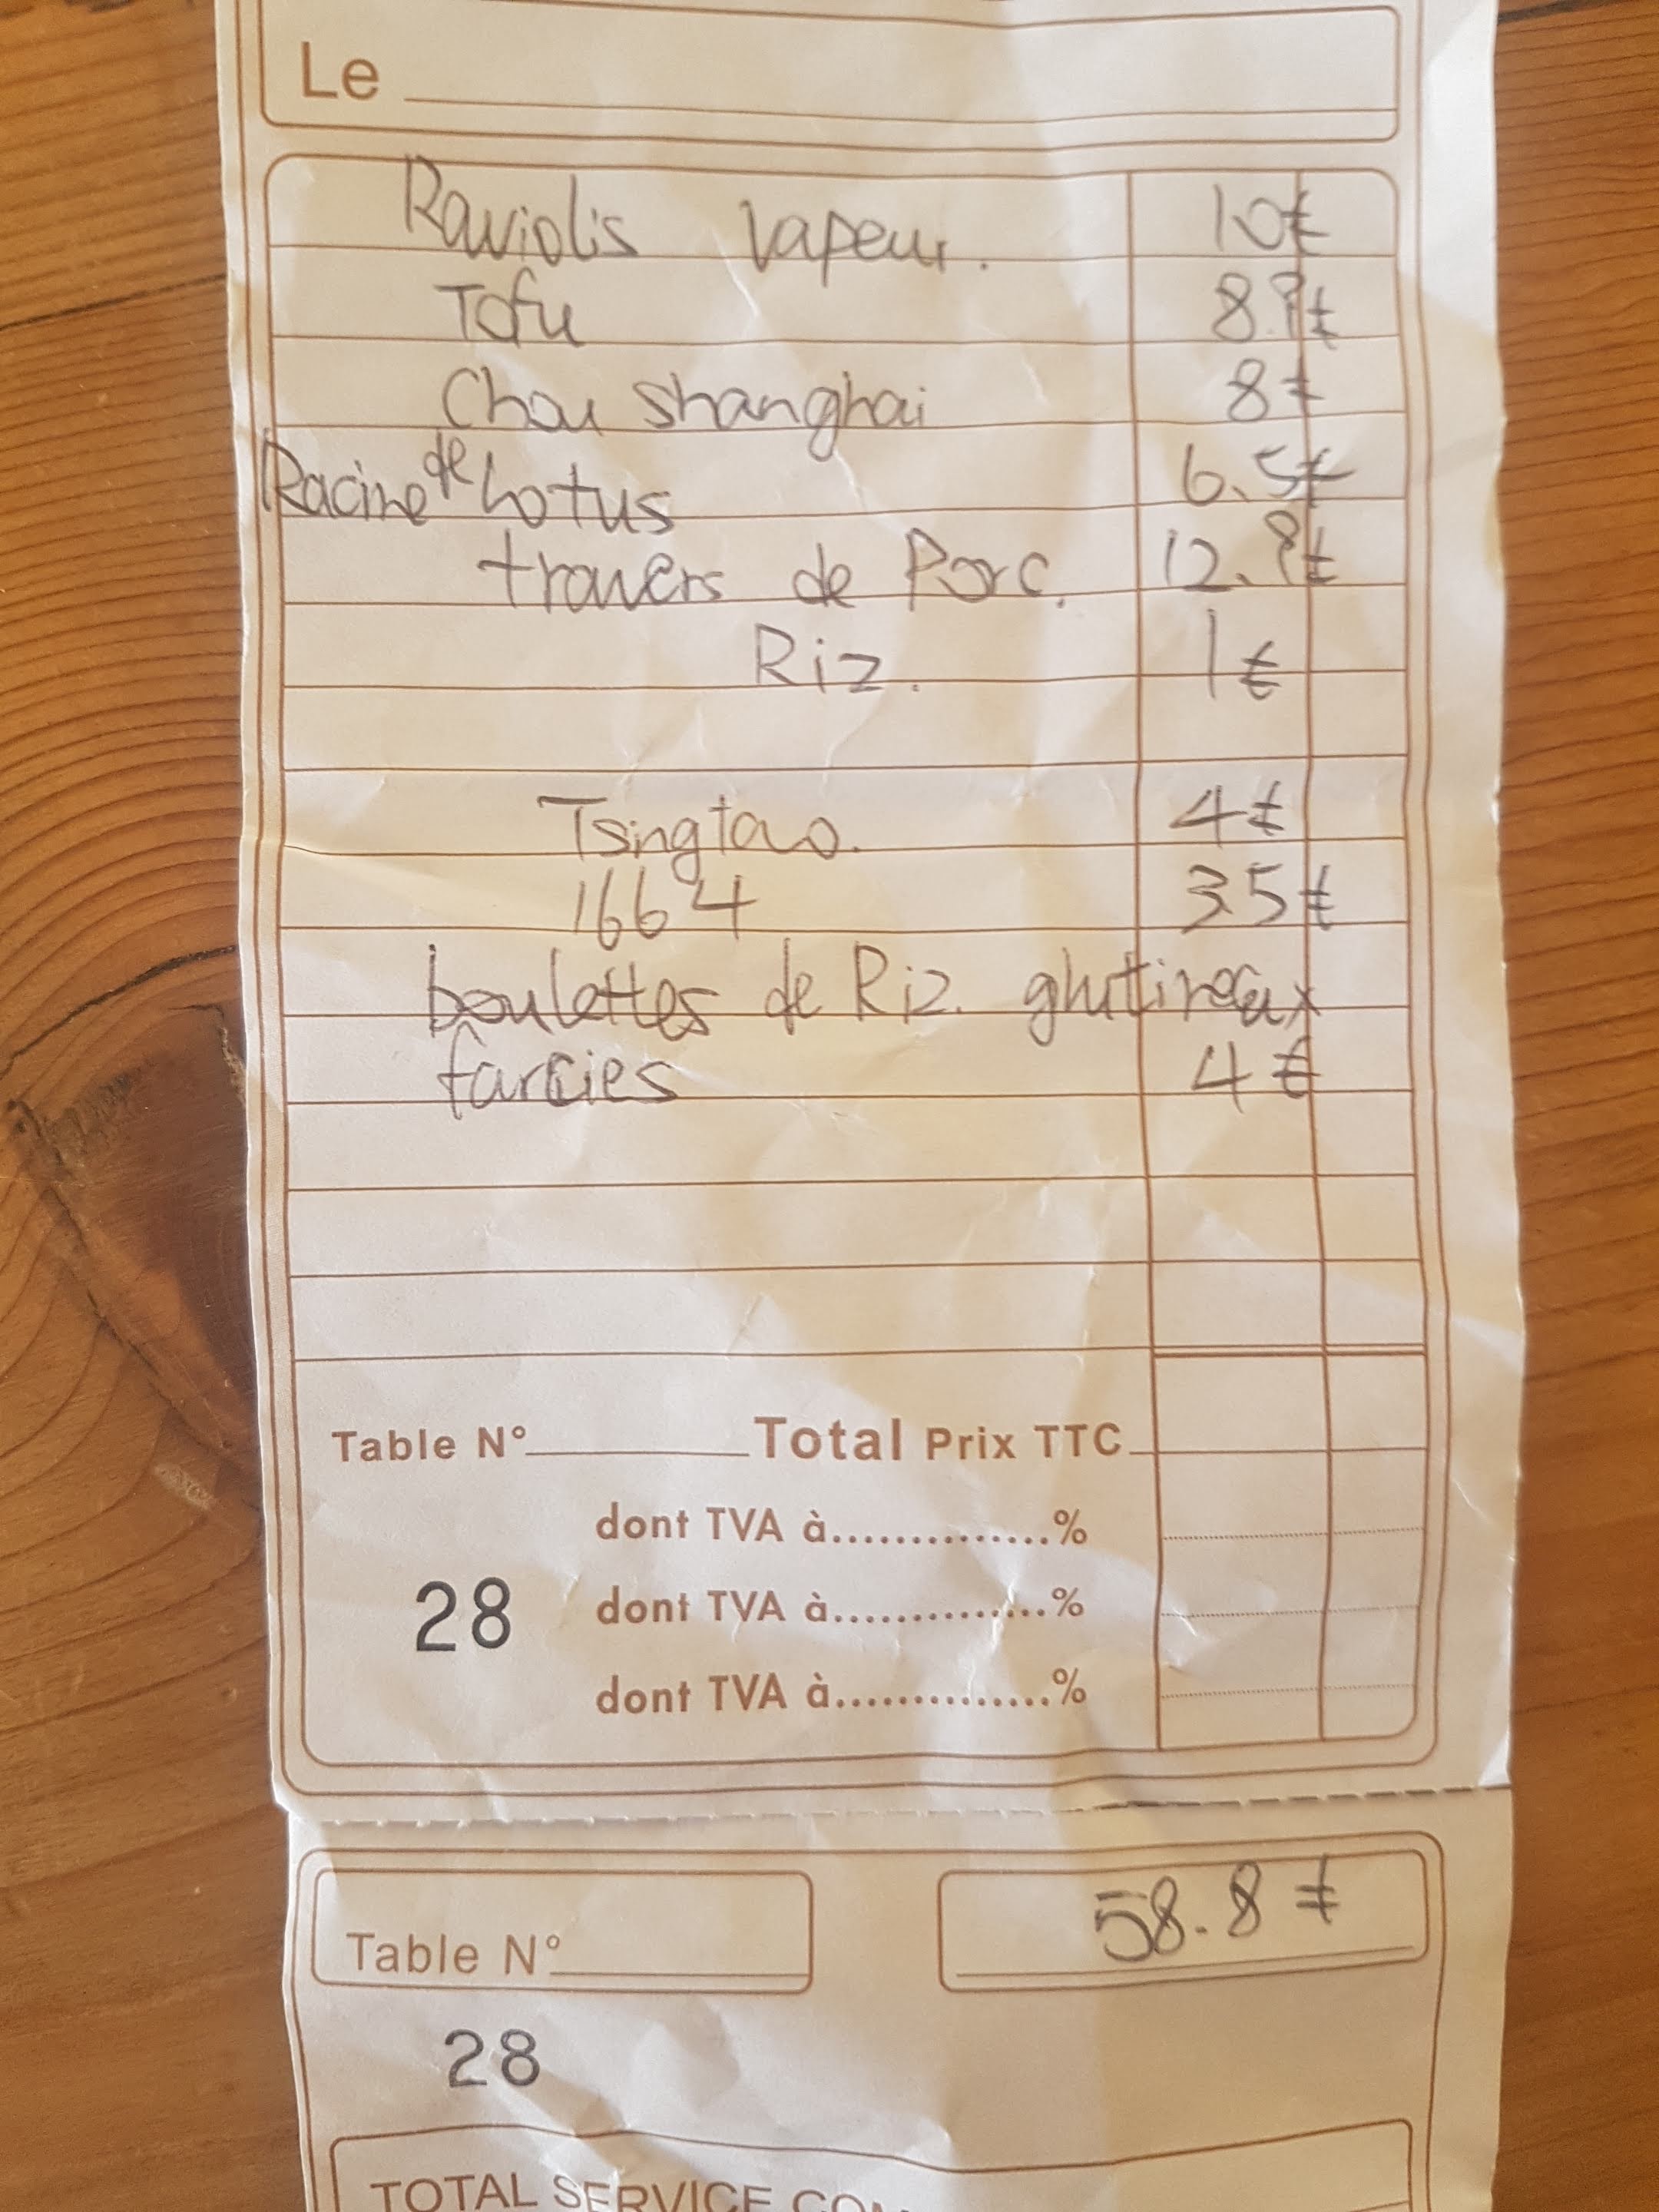 Le
Raviolis vapeur. 10€
Tofu 8.9€
Chou shanghai 8€
Racine de Lotus 6.5€
travers de Porc. 12.9€
Riz. 1€
Tsingtao. 4€
1664 3.5€
boulettes de Riz. glutineux
farcies 4€
Table N° Total Prix TTC
dont TVA à..............%
28 dont TVA à..............%
dont TVA à..............%
58.8€
Table N°
28
TOTAL SERVICE COM